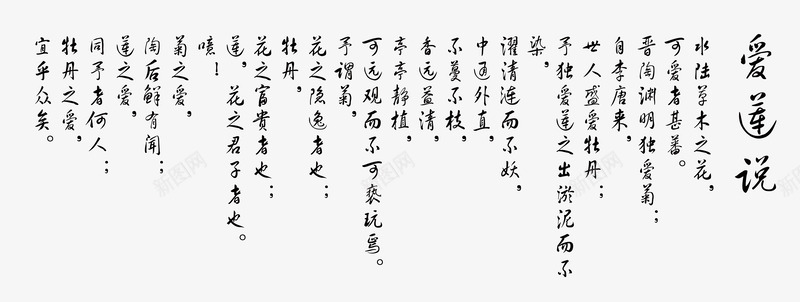 爱莲说
水陆草木之花，
可爱者甚蕃。
晋陶渊明独爱菊；
自李唐来，
世人盛爱牡丹；
予独爱莲之出淤泥而不
染，
濯清涟而不妖，
中通外直，
不蔓不枝，
香远益清，
亭亭静植，
可远观而不可亵玩焉。
予谓菊，
花之隐逸者也；
牡丹，
花之富贵者也；
莲，花之君子者也。
噫！
菊之爱，
陶后鲜有闻；
莲之爱，
同予者何人；
牡丹之爱，
宜乎众矣。
新图网
新图网
新图网